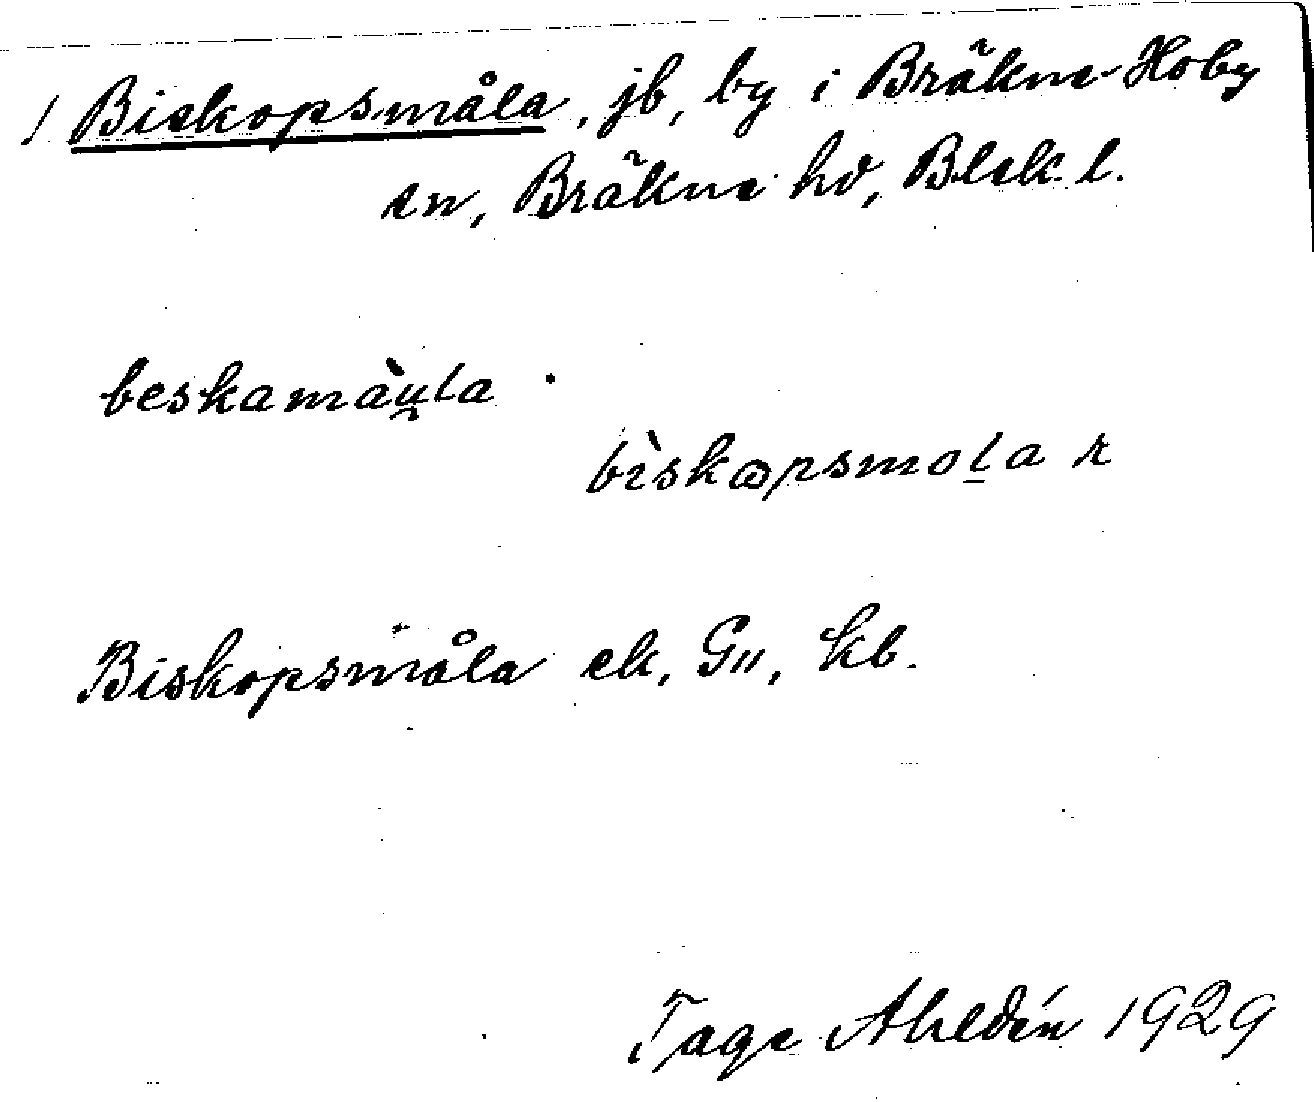 / Biskopsmåla, jb, by i Bräkne-Hoby
sn, Bräkne hd, Blek. l.
beskamàu̯la
bìskɷpsmol̠a r
Biskopsmåla ek, G11, kb.
Tage Ahldén 1929